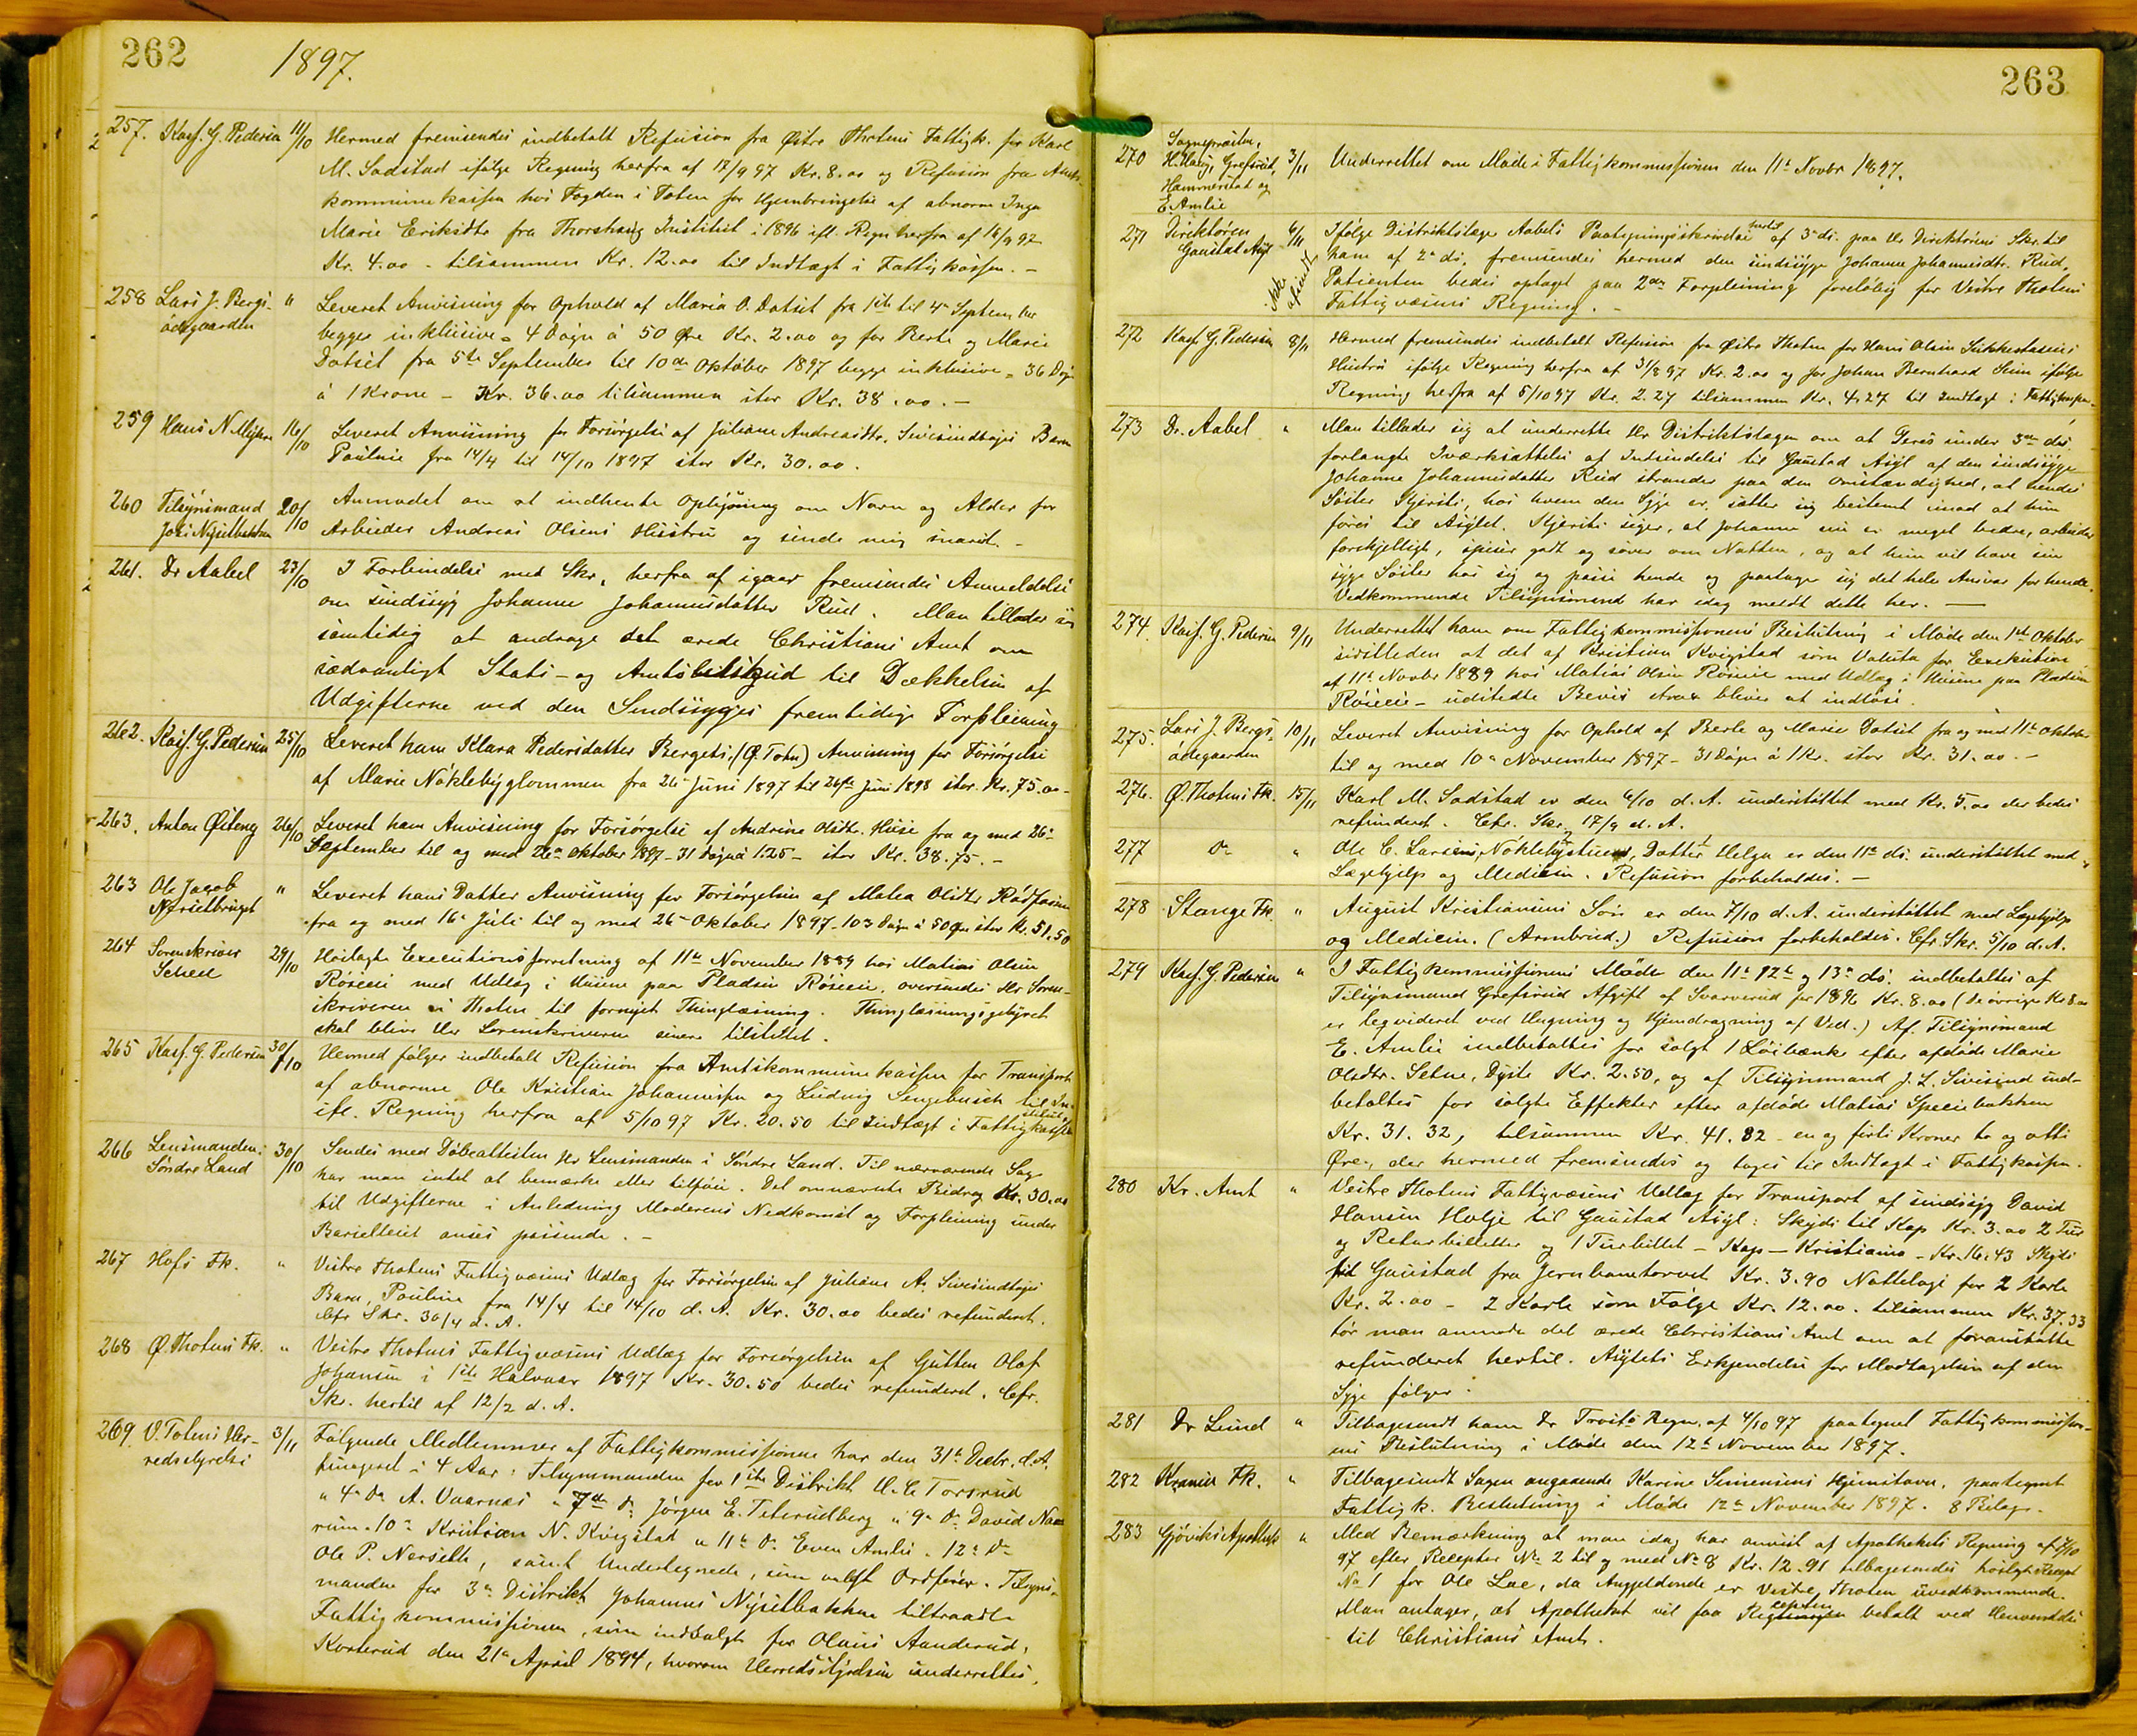 262 1897.
257. Kass. G. Pedersen 11/10 Hermed fremsendes indbetalt Refusion fra Østre Thotens Fattigk. for Karl
M. Sadstad ifølge Regning herfra af 17/9 97 Kr. 8.00 og Refusion fra Amts-
kommunekassen hos Fogden i Toten for Hjembringelse af abnorm Inga
Marie Eriksdtr fra Thorshaug Institut i 1896 ifl. Regn herfra af 16/9 97
Kr. 4.00 - tilsammen Kr. 12.00 til Indtægt i Fattigkassen. -
258 Lars J. Bergs- " Leveret Anvisning for Ophold af Maria O. Dotset fra 1ste til 4de September
ødegaarden begge inklusive = 4 Døgn à 50 Øre Kr. 2.00 og for Berte og Marie
Dotset fra 5te September til 10de Oktober 1897 begge inklusive = 36 Døgn
à 1 Krone - Kr. 36.00 tilsammen stor Kr. 38.00. -
259 Hans N. 16/10 Leveret Anvisning for Forsørgelse af Juliane Andreasdtr. Sivesindhøges Barn
Pauline fra 14/4 til 14/10 1897 stor Kr. 30.00.
260 Tilsynsmand 20/10 Anmodet om at indhente Oplysning om Navn og Alder for
Johs Nysetbakken Arbeider Andreas Olsens Hustru og sende mig snarest. -
261. Dr Aabel 23/10 I Forbindelse med Skr. herfra af igaar fremsendes Anmeldelse
om sindssyg Johanne Johannesdatter Rud. Man tillader sig
samtidig at andrage det ærede Christians Amt om
sædvanligt Stats- og Amtsbidrag til Dækkelsen af
Udgifterne ved den Sindssyges fremtidige Forpleining
262. Kass. G. Pedersen 25/10 Leveret ham Klara Pedersdatter Bergets (Ø. Toten) Anvisning for Forsørgelse
af Marie Nøklebyglommen fra 26 Juni 1897 til 26de Juni 1898 stor Kr. 75.00 -
263. Anton Østeng 26/10 Leveret ham Anvisning for Forsørgelse af Andrine Olsdtr. Huse fra og med 26de
September til og med 26de Oktober 1897 - 31 Døgn à 1.25 - stor Kr. 38.75. -
263 Ole Jacob " Leveret hans Datter Anvisning for Forsørgelsen af Matea Olsdtr
Nersetbruget fra og med 16de Juli til og med 26de Oktober 1897 - 103 Døgn à 50 Øre stor Kr. 51.50
264 Sorenskriver 29/10 Høilagte Executionsforretning af 11te November 1889 hos Matias Olsen
Scheel Røseie med Udlæg i Husene paa Pladsen Røseie, oversendes Hr. Soren-
skriveren i Thoten til fornyet Thinglæsning. Thinglæsningsgebyret
skal blive Hr Sorenskriveren senere tilstillet.
265 Kass. G. Pedersen 30/10 Hermed følger indbetalt Refusion fra Amtskommunekassen for Transport
af abnorme Ole Kristian Johannessen og Ludvig Sengebusch til In-
stitut
ifl. Regning herfra af 5/10 97 Kr. 20.50 til Indtægt i Fattigkassen
266 Lensmanden i 30/10 Sendes med Døbeattesten Hr Lensmanden i Søndre Land. Til nærværende Sag
Søndre Land har man intet at bemærke eller tilføie. Det omnævnte Bidrag Kr. 30.00
til Udgifterne i Anledning Moderens Nedkomst og Forpleining under
Barselleiet anses passende. -
267 Hofs Fk. " Vestre Thotens Fattigvæsens Udlæg for Forsørgelsen af Juliane A. Sivesindhøges
Barn, Pauline fra 14/4 til 14/10 d. A. Kr. 30.00 bedes refunderet.
Cfr Skr. 30/4 d. A.
268 Ø. Thotens Fk. " Vestre Thotens Fattigvæsens Udlæg for Forsørgelsen af Gutten Olaf
Johansen i 1ste Halvaar 1897 Kr. 30.50 bedes refunderet. Cfr.
Skr. hertil af 12/2 d. A.
269 V. Totens Her- 3/11 Følgende Medlemmer af Fattigkommissionen har den 31te Decbr. d. A.
redsstyrelse fungeret i 4 Aar: Tilsynsmanden for 1ste Distrikt H. C. Torsrud
" 4de Do A. Vaarnæs " 7de Do Jørgen E. Teterudberg " 9de Do David
rum. 10de Kristian N. Kvigstad " 11te Do Even Amlie. 12te Do
Ole P. Nerseth, samt Undertegnede, som valgt Ordfører. Tilsyns-
manden for 3de Distrikt Johannes Nysetbakken tiltraadte
Fattigkommissionen, som indvalgt for Olaus Aanderud,
Korterud den 21de April 1894, hvorom Herredsstyrelsen underrettes.
263
270 Sogneprästen, 3/11 Underrettet om Møde i Fattigkommissionen den 11te Novbr 1897.
H. Haug, Grefsrud,
Hammerstad og
E. Amlie
271 Direktøren 4/11 Ifølge Distriktslæge Aabels Paategningsskrivelse af 3de ds. paa Hr Direktørens Skr. til
Gaustad Asyl ham af 2de ds. fremsendes hermed den sindssyge Johanne Johannesdtr. Rud.
ikke afsendt Patienten bedes optaget paa 2den Forpleining foreløbig for Vestre Thotens
Fattigvæsens Regning. -
272 Kass G. Pedersen 8/11 Hermed fremsendes indbetalt Refusion fra Østre Thoten for Hans Olsen
Hustru ifølge Regning herfra af 31/8 97 Kr. 2.00 og for Johan Bernhard ifølge
Regning herfra af 5/10 97 Kr. 2.27 tilsammen Kr. 4.27 til Indtægt i Fattigkassen. -
273 Dr. Aabel " Man tillader sig at underrette Hr Distriktslægen om at Deres under 3die ds.
forlangte Iværksættelse af Indsendelse til Gaustad Asyl af den sindssyge
Johanne Johannesdatter Rud strander paa den Omstændighed, at hendes
Søster Kjersti, hos hvem den Syge er, sætter sig bestemt imod at hun
føres til Asylet. Kjersti siger, at Johanne nu er meget bedre, arbeider
forskjelligt, spiser godt og sover om Natten, og at hun vil have sin
syge Søster hos sig og passe hende og paatage sig det hele Ansvar for hende.
Vedkommende Tilsynsmænd har idag meldt dette her. —
274 Kass. G. Pedersen 9/11 Underrettet ham om Fattigkommissionens Beslutning i Møde den 1ste Oktober
sidstleden at det af Kristian Kvigstad som Valuta for Execution
af 11te Novbr 1889 hos Matias Olsen Røseie med Udlæg i Husene paa Pladsen
Røseie - udstedte Bevis straks bliver at indløse.
275. Lars J. Bergs- 10/11 Leveret Anvisning for Ophold af Berte og Marie Dotset fra og med 11te Oktober
ødegaarden til og med 10de November 1897 - 31 Døgn à 1 Kr. stor Kr. 31.00. -
276. Ø. Thotens Fk. 15/11 Karl M. Sadstad er den 6/10 d. A. understøttet med Kr. 5.00 der bedes
refunderet. Cfr. Skr. 17/9 d. A.
277 Do " Ole C. Larsens, Nøklebystuens, Datter Helga er den 11te ds. understøttet med
Lægehjelp og Medicin. Refusion forbeholdes. -
278 Stange Fk. " August Kristiansens Søn er den 7/10 d. A. understøttet med Lægehjælp
og Medicin. (Armbrud.) Refusion forbeholdes. Cfr. Skr. 5/10 d. A.
279 Kass. G. Pedersen " I Fattigkommissionens Møde den 11te 12te og 13de ds. indbetaltes af
Tilsynsmand Grefsrud Afgift af Svarverud for 1896 Kr. 8.00 (de øvrige Kr 8.00
er liqvideret ved Hugning og Hjemdragning af Ved.) Af Tilsynsmand
E. Amlie indbetaltes for solgt 1 Løibænk efter afdøde Marie
Olsdtr. Setne, Dyste Kr. 2.50, og af Tilsynsmand J. L. Sivesind ind-
betaltes for solgte Effekter efter afdøde Matias Speciebakken
Kr. 31.32, tilsammen Kr. 41.82 - en og firti Kroner to og otti
Øre, der hermed fremsendes og tages til Indtægt i Fattigkassen.
280 Kr. Amt " Vestre Thotens Fattigvæsens Udlæg for Transport af sindssyg David
Hansen Holje til Gaustad Asyl: Skyds til Kap Kr. 3.00 2 Tur
og Returbilletter og 1 Turbillet - Kap - Kristiania - Kr. 16.43 Skyds
til Gaustad fra Jernbanetorvet Kr. 3.90 Nattelogi for 2 Karle
Kr. 2.00 - 2 Karle som Følge Kr. 12.00. tilsammen Kr. 37.33
tør man anmode det ærede Christians Amt om at foranstalte
refunderet hertil. Asylets Erkjendelse for Modtagelsen af den
Syge følger.
281 Dr Lund " Tilbagesendt ham Dr Regn. af 4/10 97 paategnet Fattigkommission-
ens Beslutning i Møde den 12te November 1897.
282 Fk. " Tilbagesendt Sagen angaaende Karine Simensens Hjemstavn, paategnet
Fattigk. Beslutning i Møde 12te November 1897. 8 Bilag.
283 Gjøviks Apothek " Med Bemærkning at man idag har anvist af Apothekets Regning af 7/10
97 efter Recepter No 2 til og med No 8 Kr. 12.91 tilbagesendes høilagt Recept
No 1 for Ole Lae, da Angjeldende er Vestre Thoten uvedkommende.
Man antager, at Apotheket vil faa Recepten betalt ved Henvendelse
til Christians Amt.